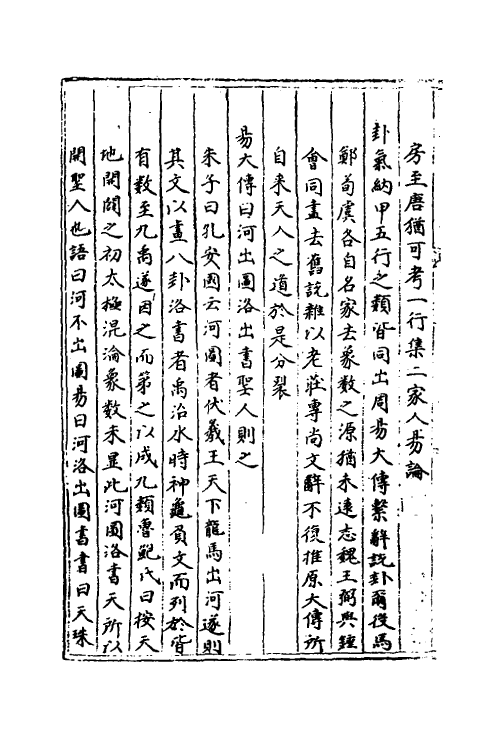 房至唐猶可考一行集二家入易論
卦氣納甲五行之類皆同出周易大傳繫辭說卦爾後馬
鄭荀虞各自名家去象數之源猶未遠志魏王弼與鍾
會同盡去舊說雜以老莊專尚文辭不復推原大傳所
自来天人之道於是分裂
易大傳曰河出圖洛出書聖人則之
朱子曰孔安國云河圖者伏羲王天下龍馬出河遂則
其文以畫八卦洛書者禹治水時神龜負文而列於背
有數至九禹遂因之而第之以成九類魯鮑氏曰按天
地開闢之初太極混淪象數未显此河圖洛書天所以
開聖人也語曰河不出圖易曰河洛出圖書書曰天球